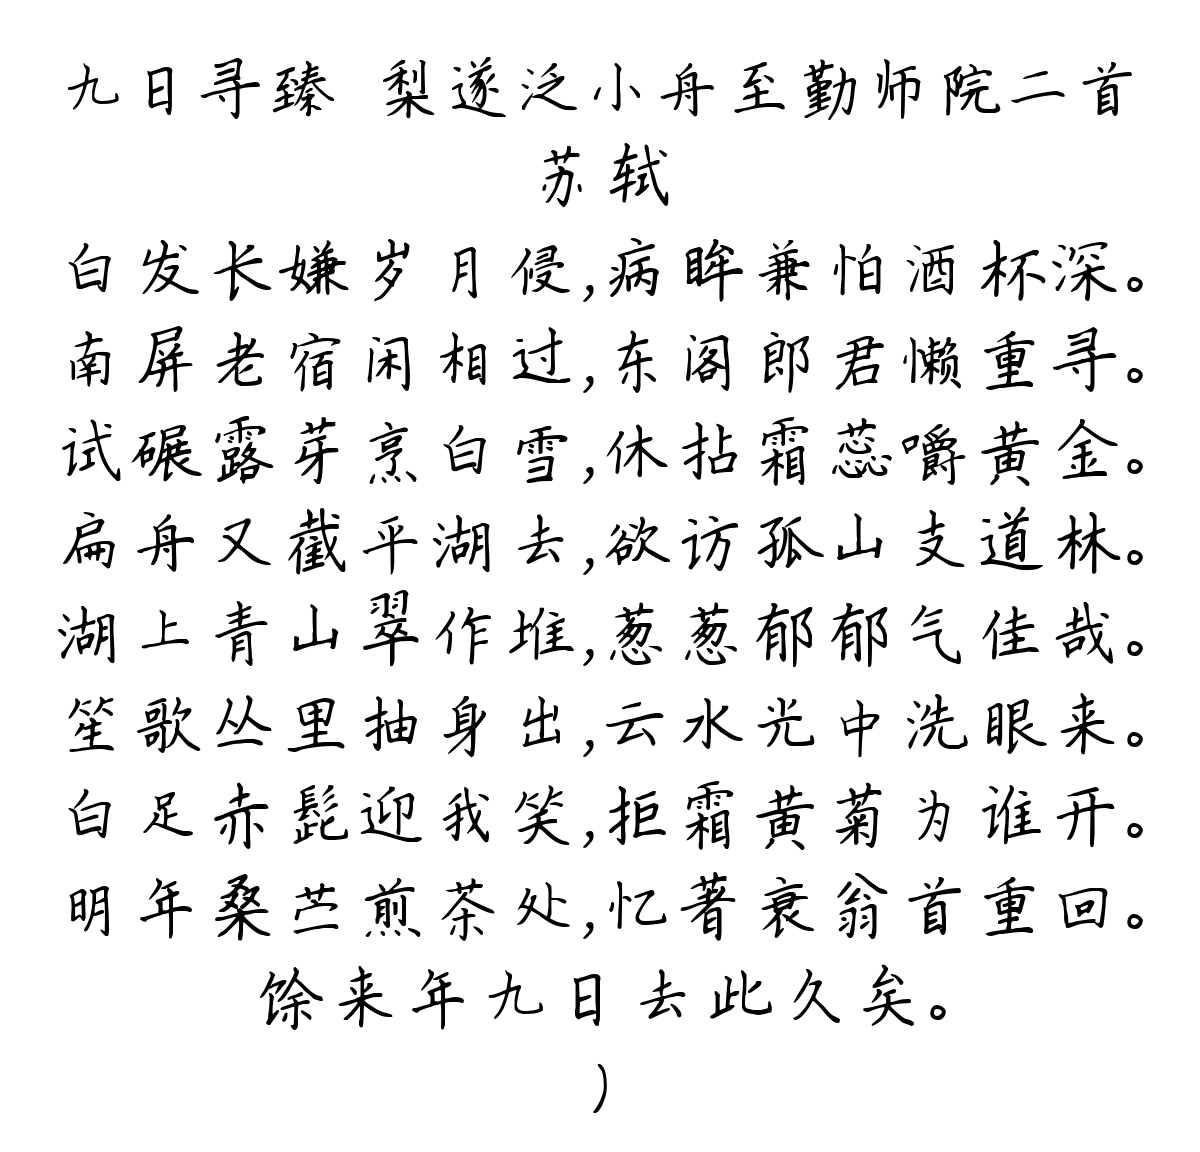 九日寻臻 梨遂泛小舟至勤师院二首
苏轼
白发长嫌岁月侵,病眸兼怕酒杯深。
南屏老宿闲相过,东阁郎君懒重寻。
试碾露芽烹白雪,休拈霜蕊嚼黄金。
扁舟又截平湖去,欲访孤山支道林。
湖上青山翠作堆,葱葱郁郁气佳哉。
笙歌丛里抽身出,云水光中洗眼来。
白足赤髭迎我笑,拒霜黄菊为谁开。
明年桑苎煎茶处,忆著衰翁首重回。
馀来年九日去此久矣。
)